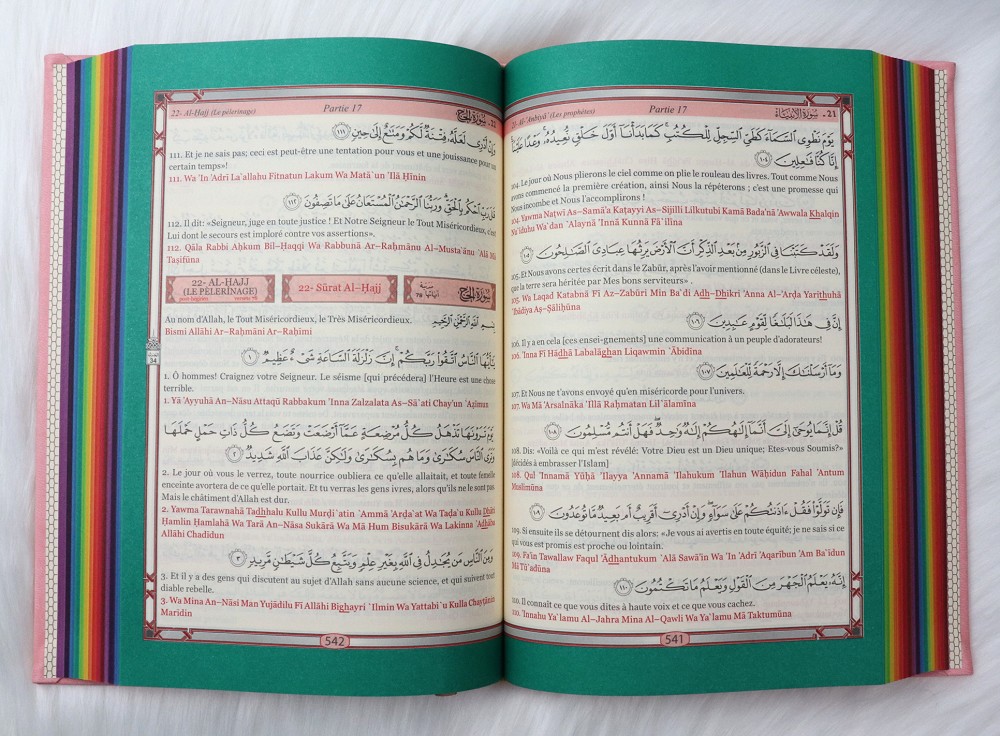 21- Al-'Anbiyā' (Les prophètes) Partie 17 21- سورة الأنبياء
يَوْمَ نَطْوِى ٱلسَّمَآءَ كَطَىِّ ٱلسِّجِلِّ لِلْكُتُبِ ۚ كَمَا بَدَأْنَآ أَوَّلَ خَلْقٍ نُّعِيدُهُۥ ۚ وَعْدًا عَلَيْنَآ
إِنَّا كُنَّا فَٰعِلِينَ ١٠٤
104. Le jour où Nous plierons le ciel comme on plie le rouleau des livres. Tout comme Nous
avons commencé la première création, ainsi Nous la répéterons ; c'est une promesse qui
Nous incombe et Nous l'accomplirons !
104. Yawma Naţwi As–Samā'a Kaţayyi As–Sijilli Lilkutubi Kamā Bada'nā 'Awwala Khalqin
Nu`īduhu Wa`dan `Alaynā 'Innā Kunnā Fā`ilīna
وَلَقَدْ كَتَبْنَا فِى ٱلزَّبُورِ مِنۢ بَعْدِ ٱلذِّكْرِ أَنَّ ٱلْأَرْضَ يَرِثُهَا عِبَادِىَ ٱلصَّٰلِحُونَ ١٠٥
105. Et Nous avons certes écrit dans le Zabūr, après l'avoir mentionné (dans le Livre céleste),
que la terre sera héritée par Mes bons serviteurs» .
105. Wa Laqad Katabnā Fī Az–Zabūri Min Ba`di Adh–Dhikri 'Anna Al–'Arđa Yarithuhā
`Ibādiya Aş–Şāliĥūna
إِنَّ فِى هَٰذَا لَبَلَٰغًا لِّقَوْمٍ عَٰبِدِينَ ١٠٦
106. Il y a en cela [ces ensei-gnements] une communication à un peuple d'adorateurs!
106. 'Inna Fī Hādhā Labalāghan Liqawmin `Ābidīna
وَمَآ أَرْسَلْنَٰكَ إِلَّا رَحْمَةً لِّلْعَٰلَمِينَ ١٠٧
107. Et Nous ne t'avons envoyé qu'en miséricorde pour l'univers.
107. Wa Mā 'Arsalnāka 'Illā Raĥmatan Lil`ālamīna
قُلْ إِنَّمَا يُوحَىٰٓ إِلَىَّ أَنَّمَآ إِلَٰهُكُمْ إِلَٰهٌ وَٰحِدٌ ۖ فَهَلْ أَنتُم مُّسْلِمُونَ ١٠٨
108. Dis: «Voilà ce qui m'est révélé: Votre Dieu est un Dieu unique; Etes-vous Soumis?»
[décidés à embrasser l'Islam]
108. Qul 'Innamā Yūĥá 'Ilayya 'Annamā 'Ilahukum 'Ilahun Wāĥidun Fahal 'Antum
Muslimūna
فَإِن تَوَلَّوْا۟ فَقُلْ ءَاذَنتُكُمْ عَلَىٰ سَوَآءٍ ۖ وَإِنْ أَدْرِىٓ أَقَرِيبٌ أَم بَعِيدٌ مَّا تُوعَدُونَ ١٠٩
109. Si ensuite ils se détournent dis alors: «Je vous ai avertis en toute équité; je ne sais si ce
qui vous est promis est proche ou lointain.
109. Fa'in Tawallaw Faqul 'Ādhantukum `Alá Sawā'in Wa 'In 'Adrī 'Aqarībun 'Am Ba`īdun
Mā Tū`adūna
إِنَّهُۥ يَعْلَمُ ٱلْجَهْرَ مِنَ ٱلْقَوْلِ وَيَعْلَمُ مَا تَكْتُمُونَ ١١٠
110. Il connaît ce que vous dites à haute voix et ce que vous cachez.
110. 'Innahu Ya`lamu Al–Jahra Mina Al–Qawli Wa Ya`lamu Mā Taktumūna
541
22- Al-Ĥajj (Le pèlerinage) Partie 17 22- سورة الحج
وَإِنْ أَدْرِى لَعَلَّهُۥ فِتْنَةٌ لَّكُمْ وَمَتَٰعٌ إِلَىٰ حِينٍ ١١١
111. Et je ne sais pas; ceci est peut-être une tentation pour vous et une jouissance pour un
certain temps!»
111. Wa 'In 'Adrī La`allahu Fitnatun Lakum Wa Matā`un 'Ilá Ĥīnin
قَٰلَ رَبِّ ٱحْكُم بِٱلْحَقِّ ۗ وَرَبُّنَا ٱلرَّحْمَٰنُ ٱلْمُسْتَعَانُ عَلَىٰ مَا تَصِفُونَ ١١٢
112. Il dit: «Seigneur, juge en toute justice ! Et Notre Seigneur le Tout Miséricordieux, c'est
Lui dont le secours est imploré contre vos assertions».
112. Qāla Rabbi Aĥkum Bil–Ĥaqqi Wa Rabbunā Ar–Raĥmānu Al–Musta`ānu `Alá Mā
Taşifūna
22- AL-HAJJ
(LE PÈLERINAGE)
post-hégirien versets 78
22- Sūrat Al–Ĥajj
سورة الحج
مدنية
آياتها 78
Au nom d'Allah, le Tout Miséricordieux, le Très Miséricordieux.
بِسْمِ ٱللَّهِ ٱلرَّحْمَٰنِ ٱلرَّحِيمِ
Bismi Allāhi Ar–Raĥmāni Ar–Raĥīmi
يَٰٓأَيُّهَا ٱلنَّاسُ ٱتَّقُوا۟ رَبَّكُمْ ۚ إِنَّ زَلْزَلَةَ ٱلسَّاعَةِ شَىْءٌ عَظِيمٌ ١
1. Ô hommes! Craignez votre Seigneur. Le séisme [qui précédera] l'Heure est une chose
terrible.
1. Yā 'Ayyuhā An–Nāsu Attaqū Rabbakum 'Inna Zalzalata As–Sā`ati Chay'un `Ažīmun
34
يَوْمَ تَرَوْنَهَا تَذْهَلُ كُلُّ مُرْضِعَةٍ عَمَّآ أَرْضَعَتْ وَتَضَعُ كُلُّ ذَاتِ حَمْلٍ حَمْلَهَا
وَتَرَى ٱلنَّاسَ سُكَٰرَىٰ وَمَا هُم بِسُكَٰرَىٰ وَلَٰكِنَّ عَذَابَ ٱللَّهِ شَدِيدٌ ٢
2. Le jour où vous le verrez, toute nourrice oubliera ce qu'elle allaitait, et toute femelle
enceinte avortera de ce qu'elle portait. Et tu verras les gens ivres, alors qu'ils ne le sont pas.
Mais le châtiment d'Allah est dur.
2. Yawma Tarawnahā Tadhhalu Kullu Murđi`atin `Ammā 'Arđa`at Wa Tađa`u Kullu Dhāti
Ĥamlin Ĥamlahā Wa Tará An–Nāsa Sukārá Wa Mā Hum Bisukārá Wa Lakinna `Adhāba
Allāhi Chadīdun
وَمِنَ ٱلنَّاسِ مَن يُجَٰدِلُ فِى ٱللَّهِ بِغَيْرِ عِلْمٍ وَيَتَّبِعُ كُلَّ شَيْطَٰنٍ مَّرِيدٍ ٣
3. Et il y a des gens qui discutent au sujet d'Allah sans aucune science, et qui suivent tout
diable rebelle.
3. Wa Mina An–Nāsi Man Yujādilu Fī Allāhi Bighayri `Ilmin Wa Yattabi`u Kulla Chayţānin
Marīdin
542